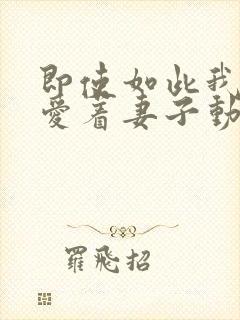 即使如此我
愛着妻子動
羅飛招